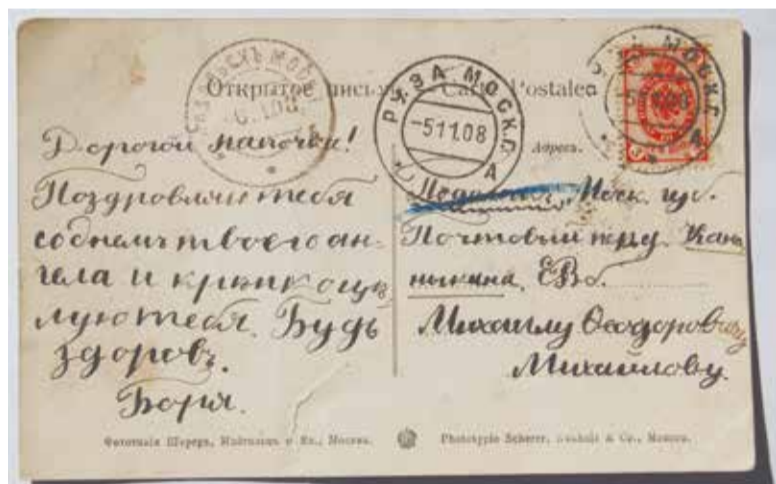 Открытое письмо. Carte Postale
РУЗА МОСК.Г.
-5 11.08
А
Дорогой папочка!
Поздровляю тебя
со днемъ твоего ан-
гела и крѣпко цѣ
лую тебя. Будь
здоровъ.
Боря.
Адресъ.
Моск. губ.
Почтовый
Е. В. б.
Михаилу Ѳеодоровичу
Михайлову.
Фототипія Шереръ, Набгольцъ и Ко., Москва.
Phototypie Scherer, Nabholz & Co., Moscou.